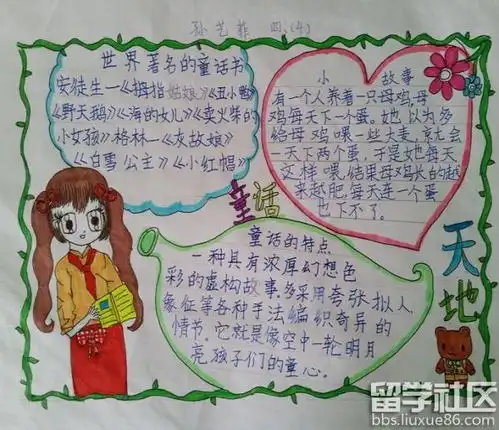 孙艺菲 四、(4)
世界著名的童话书
安徒生—《拇指姑娘》《丑小鸭》
《野天鹅》《海的女儿》《卖火柴的
小女孩》格林—《灰故娘》
《白雪公主》《小红帽》
小 故事
有一个人养着一只母鸡,母
鸡每天下一个蛋。她以为多
给母鸡喂一些大麦,就会
一天下两个蛋,于是她每天
这样喂,结果母鸡长的越
来越肥,每天连一个蛋
也下不了。
童话
天地
童话的特点
一种具有浓厚幻想色
彩的虚构故事,多采用夸张拟人、
象征等各种手法编织奇异的
情节,它就是像空中一轮明月
亮孩子们的童心。
留学社区
bbs.liuxue86.com